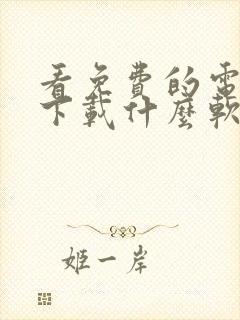 看免費的電
下載什麼軟
姬一岸